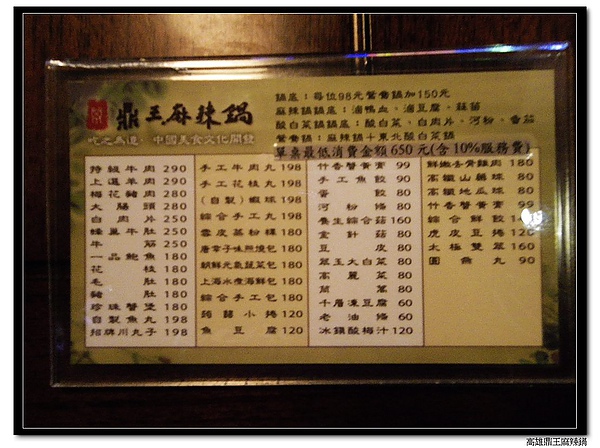 鼎王麻辣鍋
吃之為道·中國美食文化開發
鍋底：每位98元鴛鴦鍋加150元
麻辣鍋鍋底：滷鴨血、滷豆腐、蒜苗
酸白菜鍋鍋底：酸白菜、白肉片、河粉、番茄
鴛鴦鍋：麻辣鍋＋東北酸白菜鍋
單桌最低消費金額650元(含10%服務費)
特級牛肉 290
上選羊肉 290
梅花豬肉 280
大腸頭 280
白肉片 250
蜂巢牛肚 250
牛筋 250
一品鮑魚 180
花枝 180
毛肚 180
豬肚 180
珍珠蟹堡 180
自製魚丸 198
招牌川丸子 198
手工牛肉丸 198
手工花枝丸 198
（自製）蝦球 198
綜合手工丸 198
雪皮蒸粉粿 180
唐辛子味燒包 180
朝鮮元氣蔬菜包 180
上海水煮海鮮包 180
綜合手工包 180
蒟蒻小捲 120
魚豆腐 120
竹香蟹黃膏 99
手工魚餃 90
蛋餃 80
河粉條 80
養生綜合菇 160
金針菇 80
豆皮 80
翠玉大白菜 80
高麗菜 80
茼蒿 80
千層凍豆腐 60
老油條 60
冰鎮酸梅汁 120
鮮嫩去骨雞肉 180
高鐵山藥球 180
高鐵地瓜球 180
竹香蟹黃膏 99
綜合鮮餃
虎皮豆捲 120
太極雙翠 160
圓魚丸 90
高雄鼎王麻辣鍋